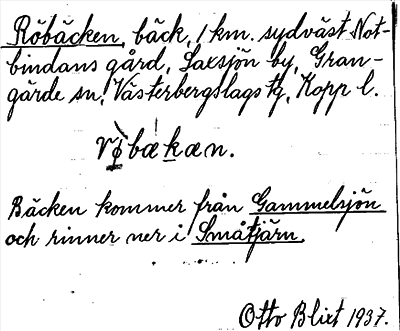 Röbäcken, bäck, 1 km. sydväst Not-
bindans gård, Laxsjön by, Gran-
gärde sn, Västerbergslags tg, Kopp l.
rø̀bækæn.
Bäcken kommer från Gammelsjön
och rinner ner i Småtjärn.
Otto Blixt 1937.